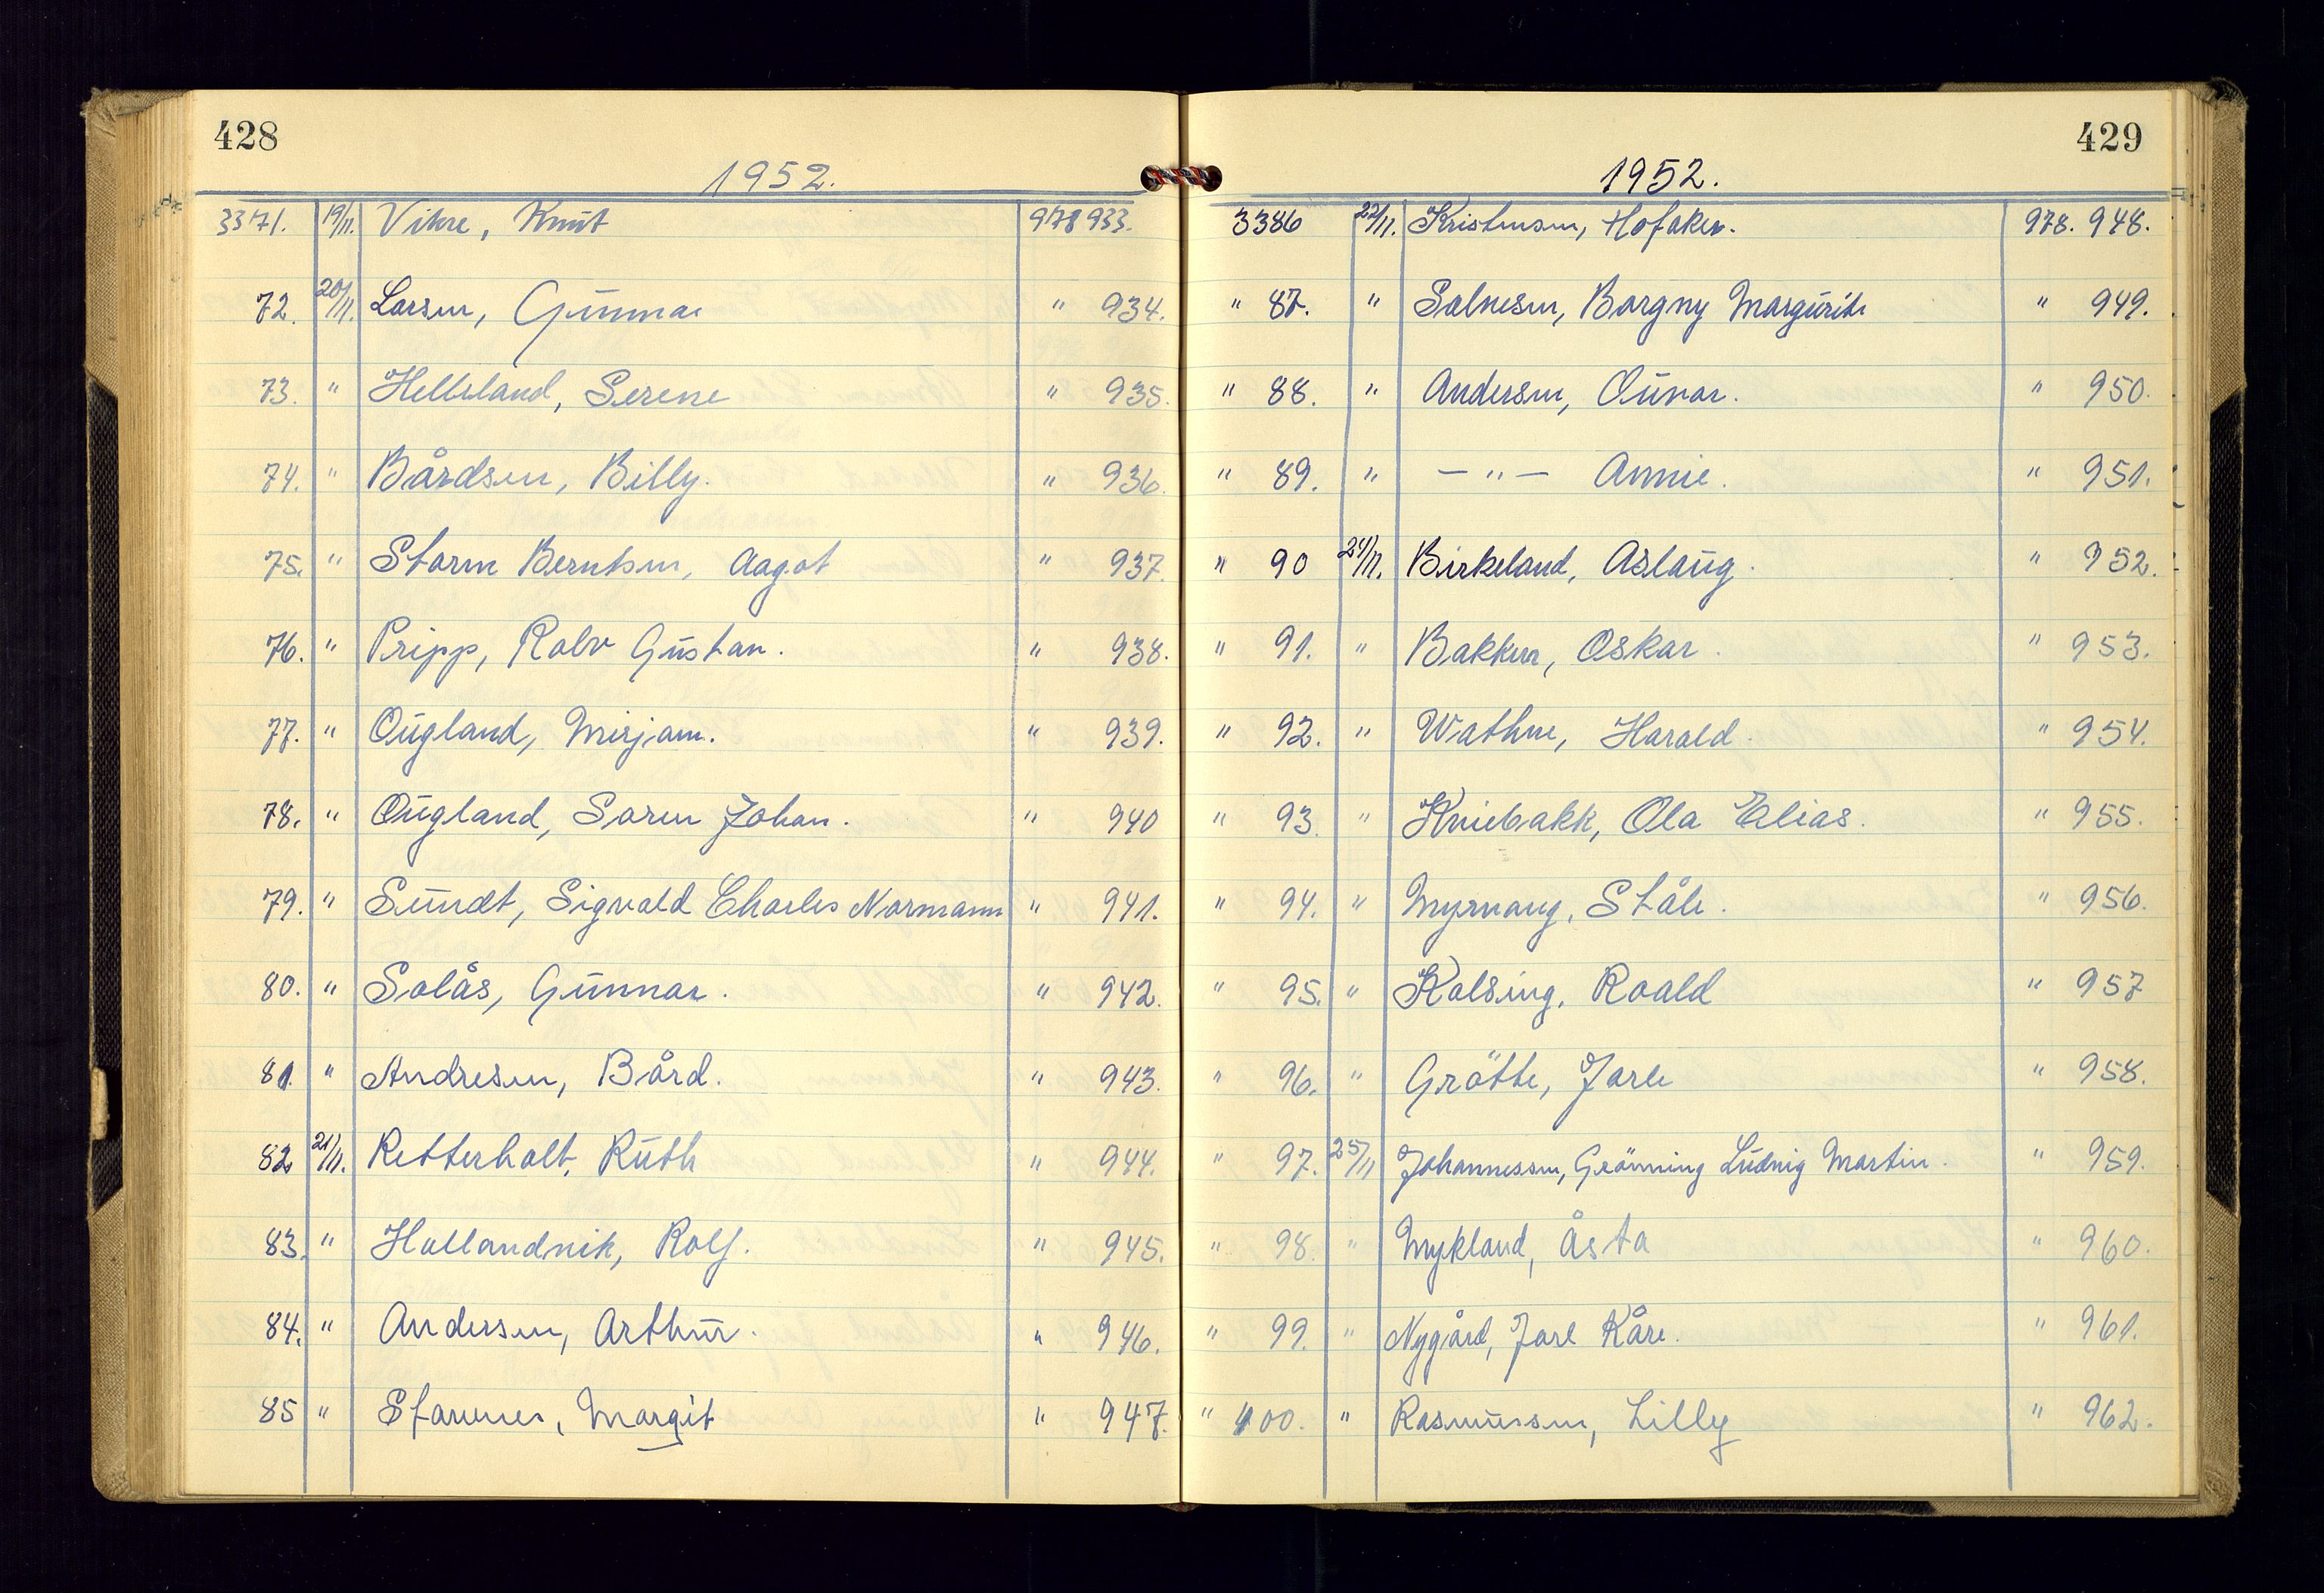 428
1952.
3371. 19/11. Vikre, Knut 978 933.
72. 20/11. Larsen, Gunnar " 934.
73. " Helleland, Serene " 935.
74. " Bårdsen, Billy. " 936.
75. " Storm Berntsen, Aagot " 937.
76. " Pripp, Rolv Gustav. " 938.
77. " Ougland, Mirjam. " 939.
78. " Ougland, Soren Johan. " 940
79. " Sundt, Sigvald Charles Normann " 941.
80. " Solås, Gunnar. " 942.
81. " Andresen, Bård. " 943.
82 21/11. Retterholt, Ruth " 944.
83. " Hollandvik, Rolf. " 945.
84. " Andersen, Arthur. " 946.
85 " Margit " 947.
429
1952.
3386 22/11. Kristensen, Hofaker. 978. 948.
" 87. " Salvesen, Borgny Margurite " 949.
" 88. " Andersen, Ounar. " 950.
" 89. " — " — Annie. " 951.
" 90 24/11. Birkeland, Aslaug. " 952.
" 91. " Bakken, Oskar. " 953.
" 92. " Wathne, Harald. " 954.
" 93. " Kniebakk, Ola Elias. " 955.
" 94. " Myrvang, Ståle. " 956.
" 95. " Kolsing, Roald " 957
" 96. " Grötte, Jarle " 958.
" 97. 25/11 Johannessen, Grönning Ludvig Martin. " 959.
" 98. " Mykland, Åsta " 960.
" 99. " Nygård, Jarl Kåre. " 961.
" 400. " Rasmussen, Lilly " 962.